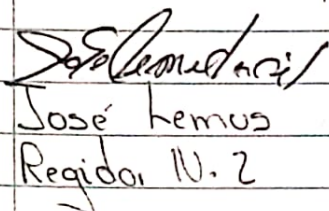 José Lemus
Regidor N. 2